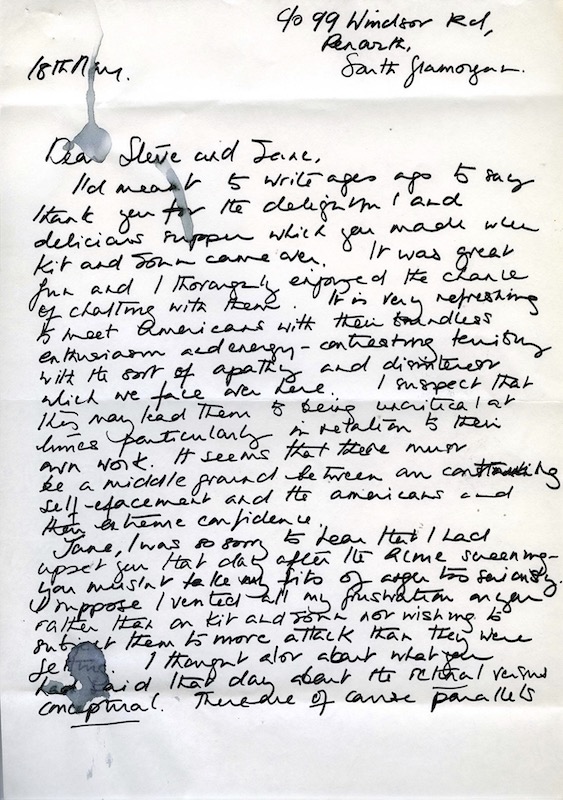 c/o 99 Windsor Rd,
Penarth,
South Glamorgan.
18th May.
Dear Steve and Jane,
I'd meant to write ages ago to say
thank you for the delightful and
delicious supper which you made when
Kit and John came over. It was great
fun and I thoroughly enjoyed the chance
of chatting with them. It is very refreshing
to meet Americans with their boundless
enthusiasm and energy - contrasting terribly
with the sort of apathy and disinterest
which we face over here. I suspect that
this may lead them to being uncritical at
times particularly in relation to their
own work. It seems that there must
be a middle ground between our
self-effacement and the americans and
their extreme confidence.
Jane, I was so sorry to hear that I had
upset you that day after the Acme screening -
you musn't take my fits of anger too seriously.
I suppose I vented all my frustration on you
rather than on Kit and John not wishing to
subject them to more attack than they were
getting. I thought alot about what you
had said that day about the retinal versus
conceptual. There are of course parallels